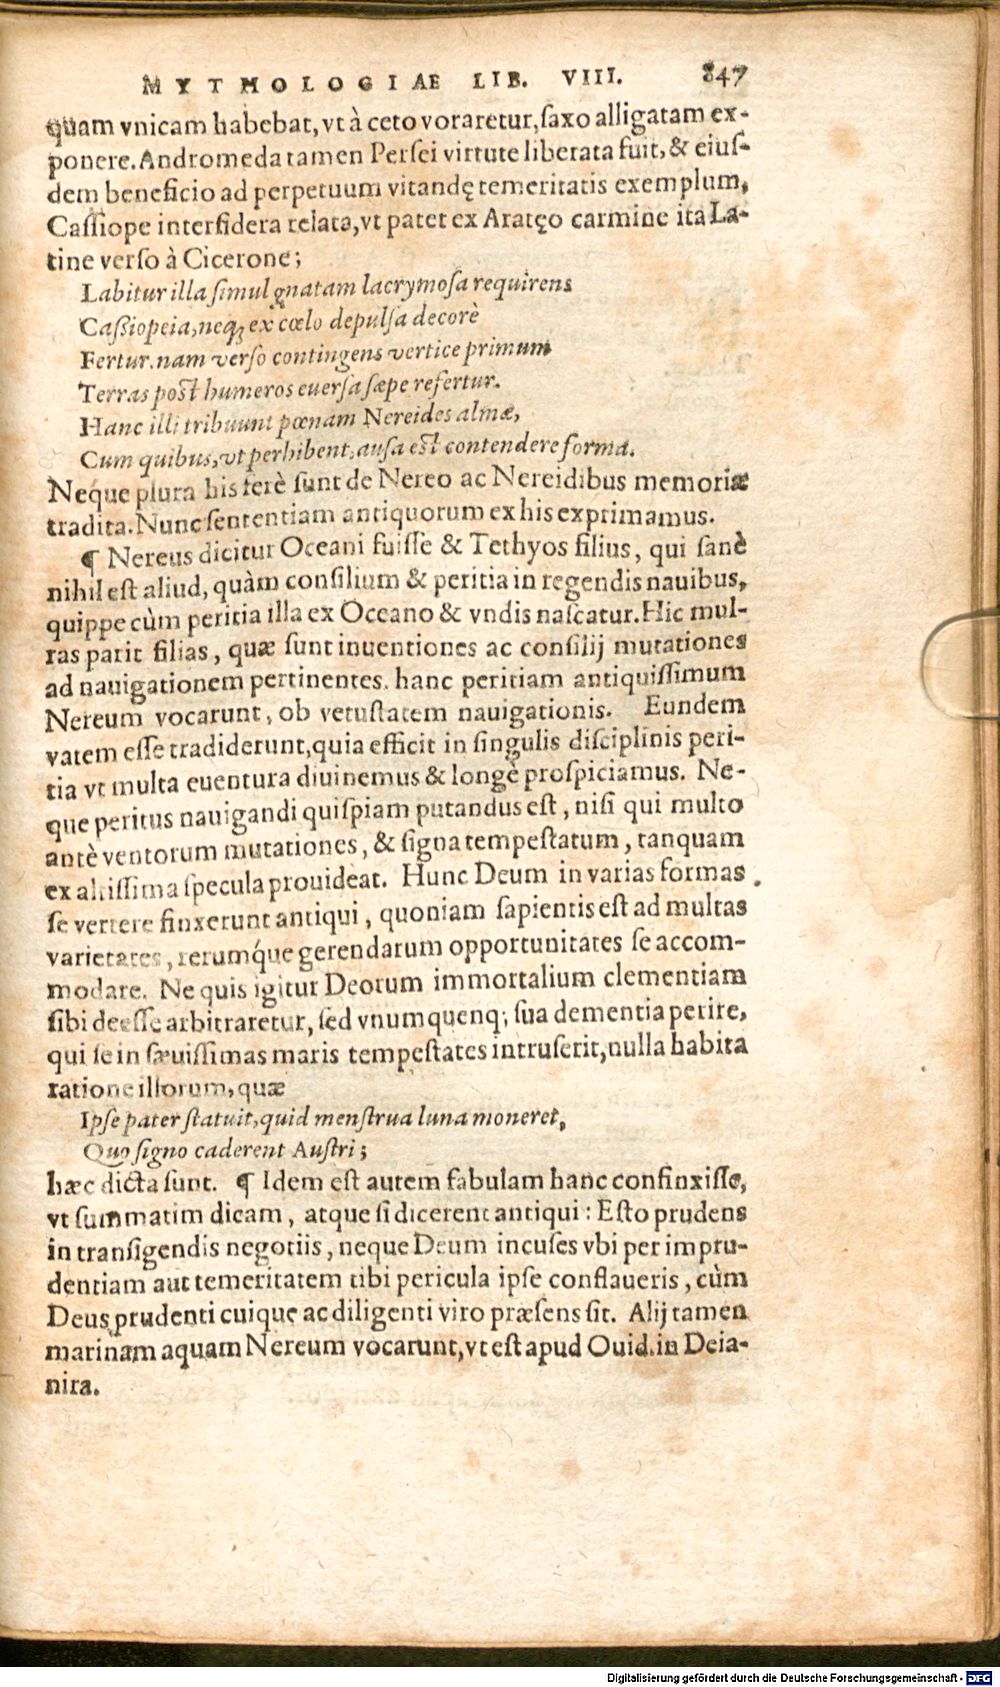 MYTHOLOGIAE LIB. VIII. 847
quam vnicam habebat, vt à ceto voraretur, saxo alligatam ex-
ponere. Andromeda tamen Persei virtute liberata fuit, & eius-
dem beneficio ad perpetuum vitandę temeritatis exemplum,
Cassiope inter sidera relata, vt patet ex Aratęo carmine ita La-
tine verso à Cicerone;
Labitur illa simul gnatam lacrymosa requirens
Cassiopeia, neq; ex cœlo depulsa decorè
Fertur. nam verso contingens vertice primum
Terras post humeros euersa sæpe refertur.
Hanc illi tribuunt pœnam Nereides almæ,
Cum quibus, vt perhibent, ausa est contendere forma.
Neque plura his ferè sunt de Nereo ac Nereidibus memoriæ
tradita. Nunc sententiam antiquorum ex his exprimamus.
¶ Nereus dicitur Oceani fuisse & Tethyos filius, qui sanè
nihil est aliud, quàm consilium & peritia in regendis nauibus,
quippe cùm peritia illa ex Oceano & vndis nascatur. Hic mul-
tas parit filias, quæ sunt inuentiones ac consilij mutationes
ad nauigationem pertinentes. hanc peritiam antiquissimum
Nereum vocarunt, ob vetustatem nauigationis. Eundem
vatem esse tradiderunt, quia efficit in singulis disciplinis peri-
tia vt multa euentura diuinemus & longè prospiciamus. Ne-
que peritus nauigandi quispiam putandus est, nisi qui multo
antè ventorum mutationes, & signa tempestatum, tanquam
ex altissima specula prouideat. Hunc Deum in varias formas
se vertere finxerunt antiqui, quoniam sapientis est ad multas
varietates, rerumq́ue gerendarum opportunitates se accom-
modare. Ne quis igitur Deorum immortalium clementiam
sibi deesse arbitraretur, sed vnumquenq; sua dementia perire,
qui se in sæuissimas maris tempestates intruserit, nulla habita
ratione illorum, quæ
Ipse pater statuit, quid menstrua luna moneret,
Quo signo caderent Austri;
hæc dicta sunt. ¶ Idem est autem fabulam hanc confinxisse,
vt summatim dicam, atque si dicerent antiqui: Esto prudens
in transigendis negotiis, neque Deum incuses vbi per impru-
dentiam aut temeritatem tibi pericula ipse conflaueris, cùm
Deus prudenti cuique ac diligenti viro præsens sit. Alij tamen
marinam aquam Nereum vocarunt, vt est apud Ouid. in Deia-
nira.
Digitalisierung gefördert durch die Deutsche Forschungsgemeinschaft - DFG